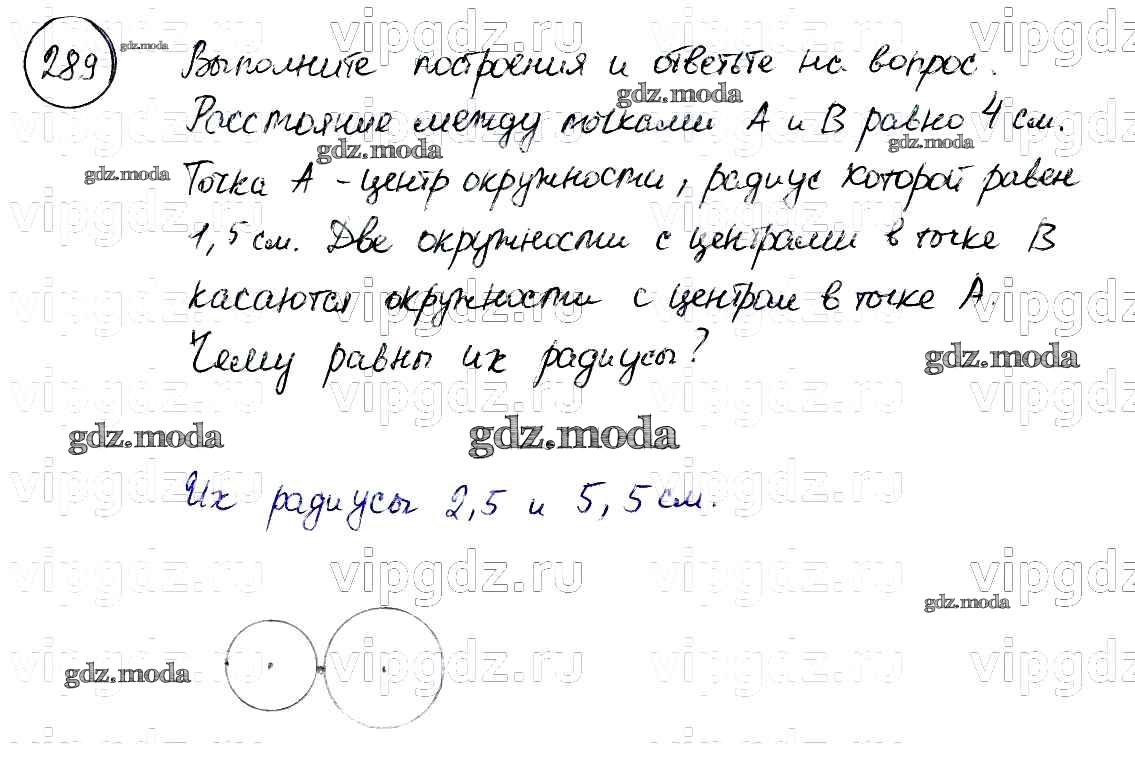 289 gdz.moda Выполните построения и ответьте на вопрос.
gdz.moda
Расстояние между точками A и B равно 4 см.
gdz.moda gdz.moda
gdz.moda Точка A - центр окружности, радиус которой равен
1,5 см. Две окружности с центрами в точке B
касаются окружности с центром в точке A.
Чему равны их радиусы?
gdz.moda
gdz.moda gdz.moda
Их радиусы 2,5 и 5,5 см.
vipgdz.ru vipgdz.ru vipgdz.ru
gdz.moda
gdz.moda